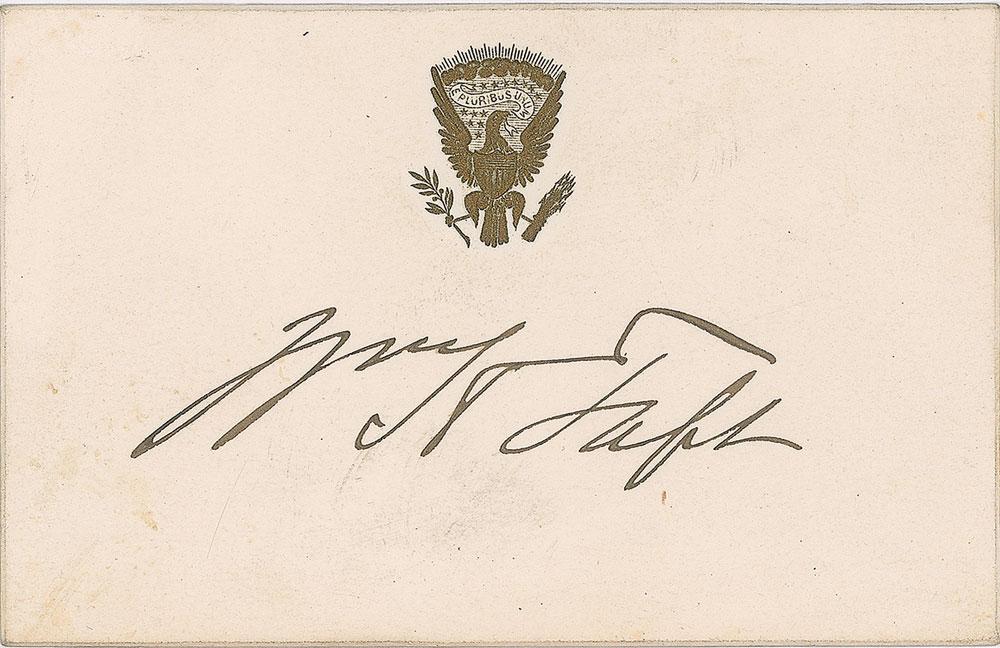 E PLURIBUS UNUM
Wm H Taft